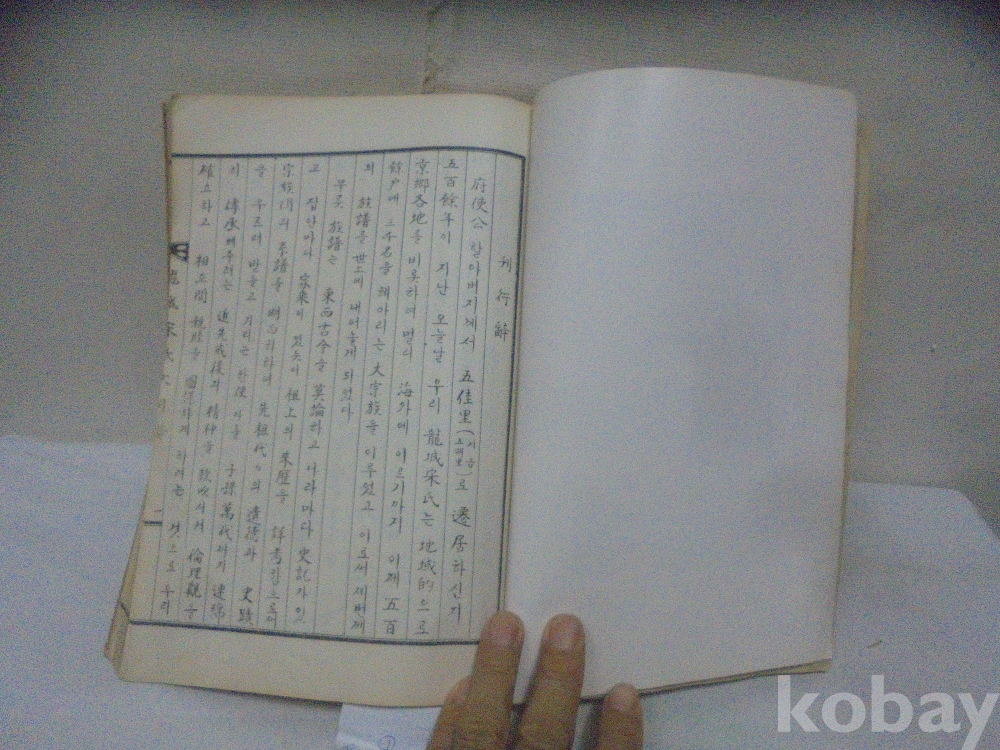 刊行辭
府使公 할아버지께서 五佳里(지금 )로 遷居하신지
五百餘年이 지난 오늘날 우리 龍城宋氏는 地域的으로
京鄕各地를 비롯하여 멀리 海外에 이르기까지 이제 五百
餘戶에 三千名을 헤아리는 大宗族을 이루었고 이로써 세번째
의 族譜를 世上에 내어놓게 되었다
무릇 族譜는 東西古今을 莫論하고 나라마다 史記가 있
고 집안마다 家乘이 있듯이 祖上의 來歷을 詳考함으로써
宗族間의 系譜를 明白히하며 先祖代々의 遺德과 史蹟
을 우르러 받들고 기리는 한편 이를 子孫萬代까지 連綿
히 傳承해주려는 追先戒後의 精神을 鼓吹시켜 倫理觀을
確立하고 相互間 親睦을 圖謀하게 하려는 것으로 우리
龍城宋氏
kobay